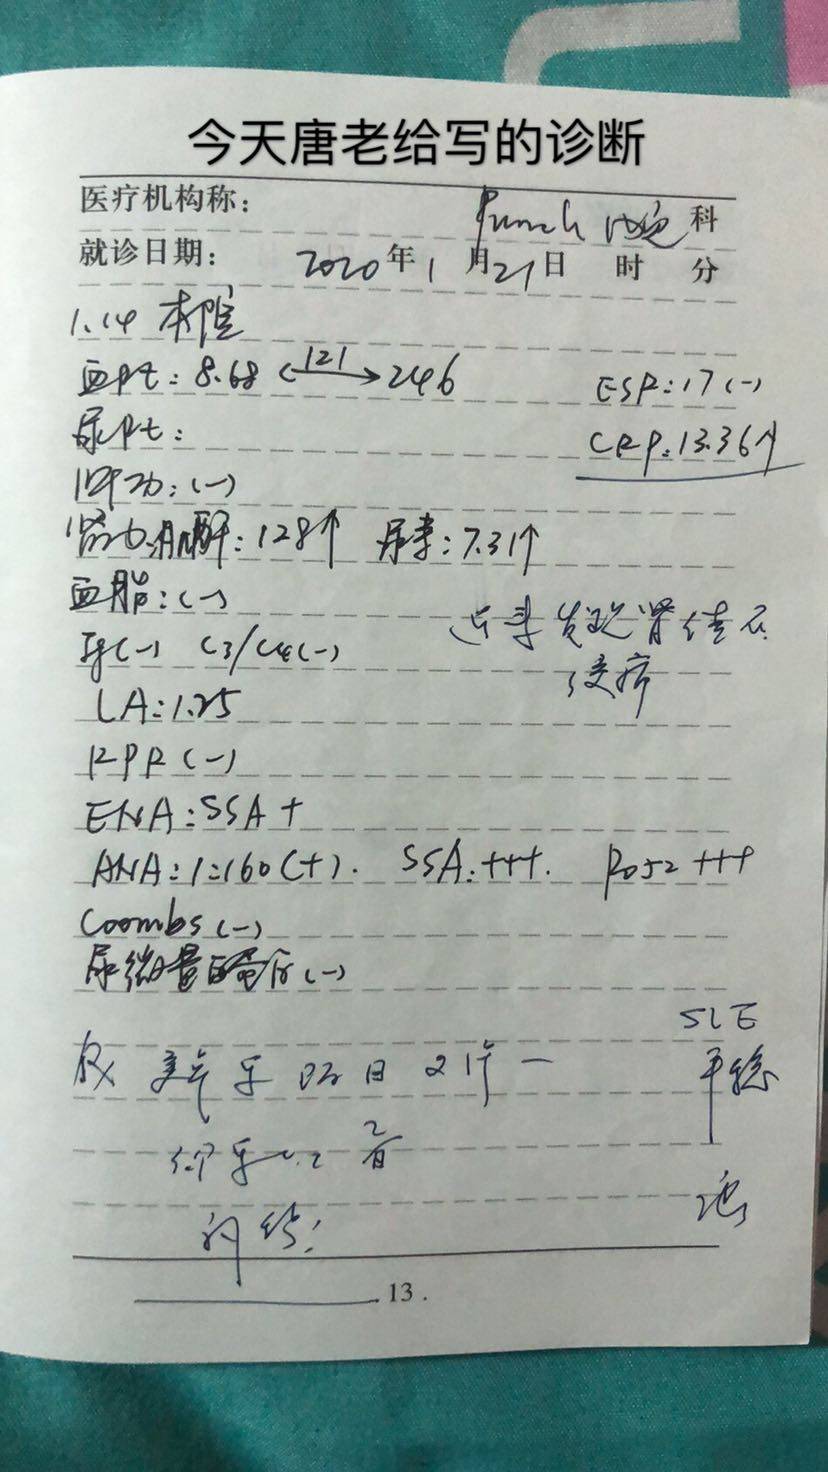 今天唐老给写的诊断
医疗机构称： 科
就诊日期： 2020年1月21日 时 分
1.14 本院
血Rt：8.68 ←121→ 246 ESR：17（-）
尿Rt： CRP：13.36↑
肝功：（-）
肾功：肌酐：128↑ 尿素：7.31↑
血脂：（-） 近来发现肾
Ig（-） C3/C4（-） 变痛
LA：1.25
RPR（-）
ENA：SSA+
ANA：1:160（+）. SSA：+++. Ro52 +++
Coombs（-）
尿微量白蛋白（-）
SLE
Rx 隔日2片 平稳
13.